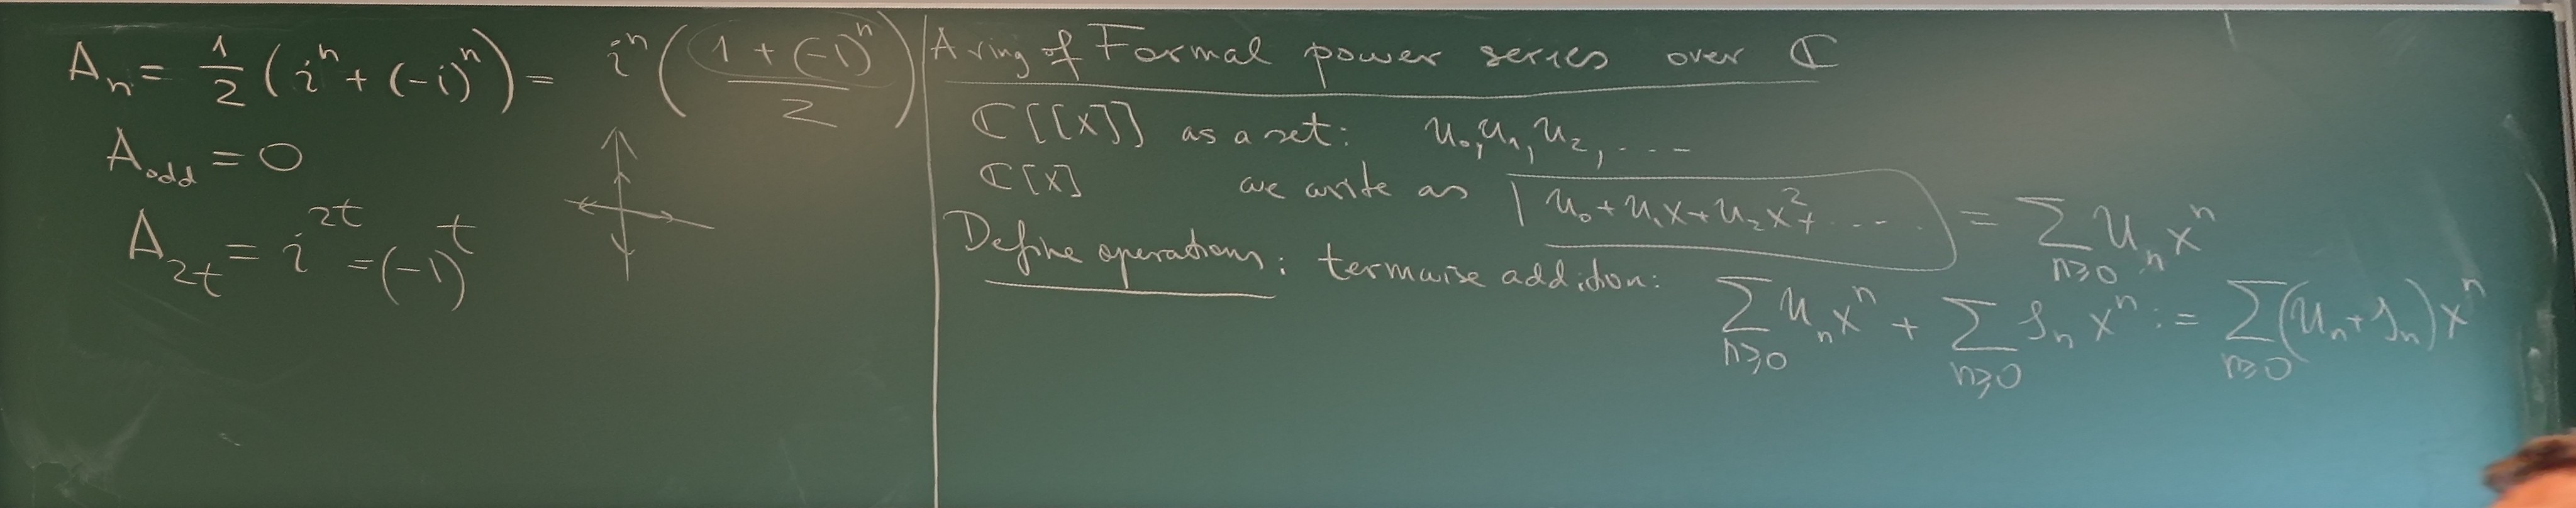 A_n = 1/2 (i^n + (-i)^n) = i^n ((1 + (-1)^n)/2)
A_odd = 0
A_2t = i^2t = (-1)^t
A ring of Formal power series over ℂ
ℂ[[x]] as a set: u_0, u_1, u_2, ...
ℂ[x] we write as u_0 + u_1x + u_2x^2 + .... = ∑_{n≥0} u_n x^n
Define operations: termwise addition: ∑_{n≥0} u_n x^n + ∑_{n≥0} s_n x^n := ∑_{n≥0} (u_n + s_n) x^n